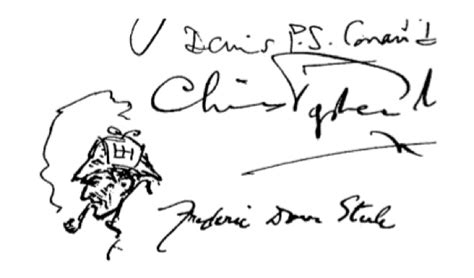 Denis P.S. Conan D
Christopher M
Frederic Dorr Steele